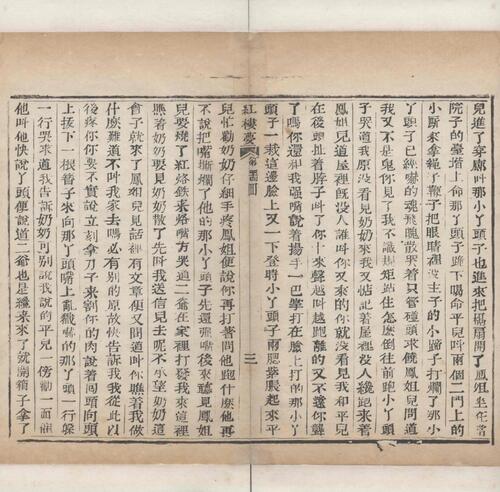 兒進了穿廊叫那小丫頭子也進來把槅扇開了鳳姐坐在
院子的臺堦上命那丫頭子跪下喝命平兒叫兩個二門上的
小厮來拿繩子鞭子把眼睛裡沒主子的小蹄子打爛了那小
丫頭子已經嚇的魂飛魄散哭着只管碰頭求饒鳳姐兒問道
我又不是鬼你見了我不識規矩站住怎麼倒往前跑小丫頭
子哭道我原沒看見奶奶來我又惦記着屋裡沒人纔跑來着
鳳姐兒道屋裡既没人誰叫你又來的你就沒看見我和平兒
在後頭扯着脖子叫了你十來聲越叫越跑離的又不遠你聾
了嗎你還和我强嘴說着揚手一巴掌打在臉上打的那小丫
頭子一栽這邊臉上又一下登時小丫頭子兩腮紫脹起來平
紅樓夢 第四十四回 三
兒忙勸奶奶仔細手疼鳳姐便說你再打着問他跑什麼他再
不說把嘴撕爛了他的那小丫頭子先還强嘴後來聽見鳳姐
兒要燒了紅烙鐵來烙嘴方哭道二爺在家裡打發我來這裡
瞧着奶奶要見奶奶散了先叫我送信兒去呢不承望奶奶這
會子就來了鳳姐兒見話裡有文章便又問道叫你瞧着我做
什麼難道不叫我家去嗎必有别的原故快告訴我我從此以
後疼你你要不實說立刻拿刀子來割你的肉說着囘頭向頭
上拔下一根簪子來向那丫頭嘴上亂戳嚇的那丫頭一行躲
一行哭求道我告訴奶奶可别說我說的平兒一傍勸一面催
他叫他快說丫頭便說道二爺也是纔來來了就開箱子拿了